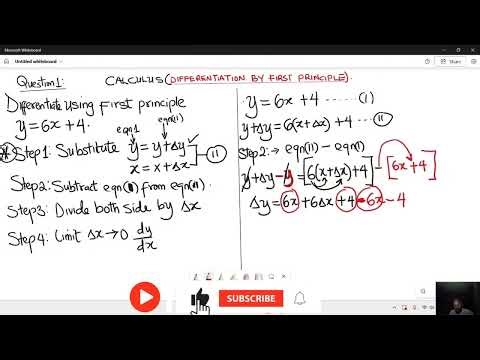 Microsoft Whiteboard
Untitled whiteboard
Question 1:
CALCULUS (DIFFERENTIATION BY FIRST PRINCIPLE).
Differentiate using first principle
y = 6x + 4.
eqn 1
eqn(11)
Step1: Substitute y = y + Δy
x = x + Δx
— 11
Step2: Subtract eqn(1) from eqn(11).
Step3: Divide both side by Δx
Step4: Limit Δx → 0 dy/dx
y = 6x + 4 ...... (1)
y + Δy = 6(x + Δx) + 4 ... 11
Step2: → eqn(11) – eqn(1)
y + Δy – y = [6(x + Δx) + 4] – [6x + 4]
Δy = 6x + 6Δx + 4 – 6x – 4
SUBSCRIBE